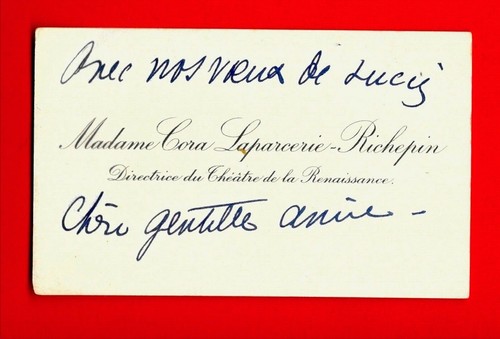 Avec nos vœux de succès
Madame Cora Laparcerie-Richepin
Directrice du Théâtre de la Renaissance.
Chère gentille amie -